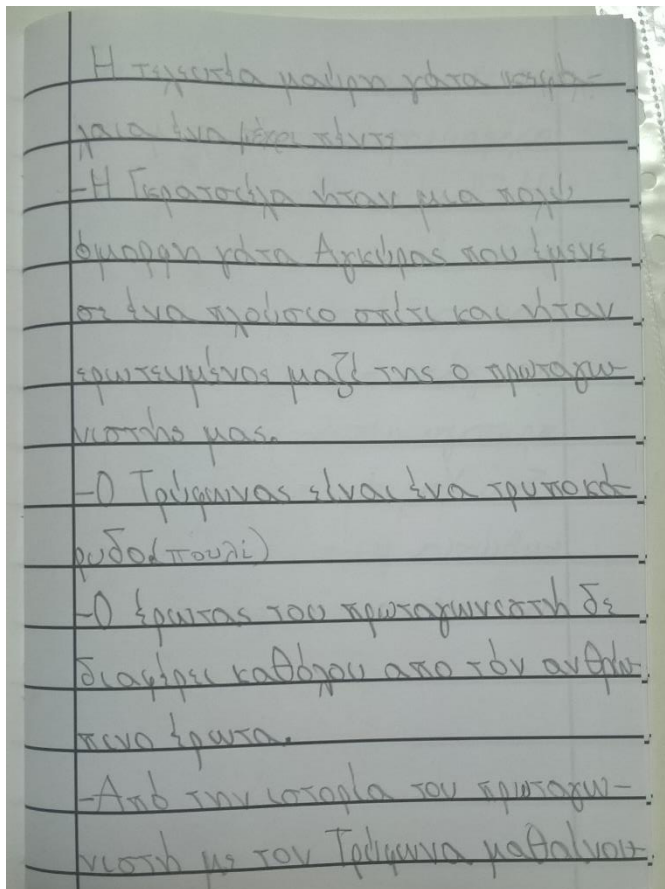 Η τελευταία μαύρη γάτα κεφά-
λαια ένα μέχρι πέντε
-Η Γκρατσιέλα ήταν μια πολύ
όμορφη γάτα Αγκύρας που έμενε
σε ένα πλούσιο σπίτι και ήταν
ερωτευμένος μαζί της ο πρωταγω-
νιστής μας.
-Ο Τρύφωνας είναι ένα τρυποκά-
ρυδο(πουλί)
-Ο έρωτας του πρωταγωνιστή δε
διαφέρει καθόλου απο τόν ανθρώ-
πινο έρωτα.
-Από την ιστορία του πρωταγω-
νιστή με τον Τρύφωνα μαθαίνου